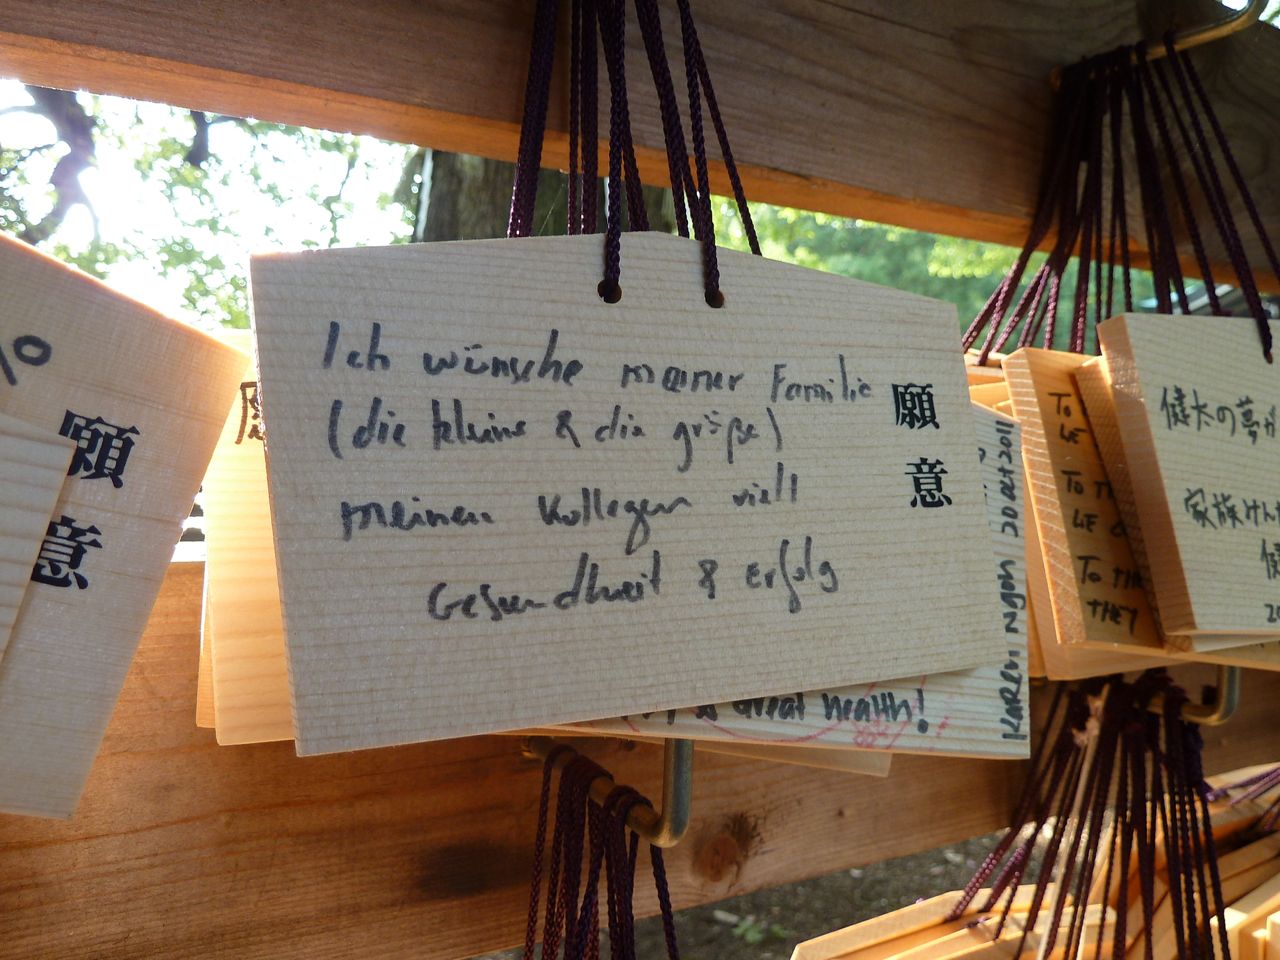 Ich wünsche meiner Familie
(die kleine & die größe)
meinen Kollegen viell
Gesundheit & erfolg
願意
願意
great health!
KAREN Ngoh 20 Oct 2011
TO
LE
TO TH
LE
TO THE
THEY
健太の夢が
家族けん
健